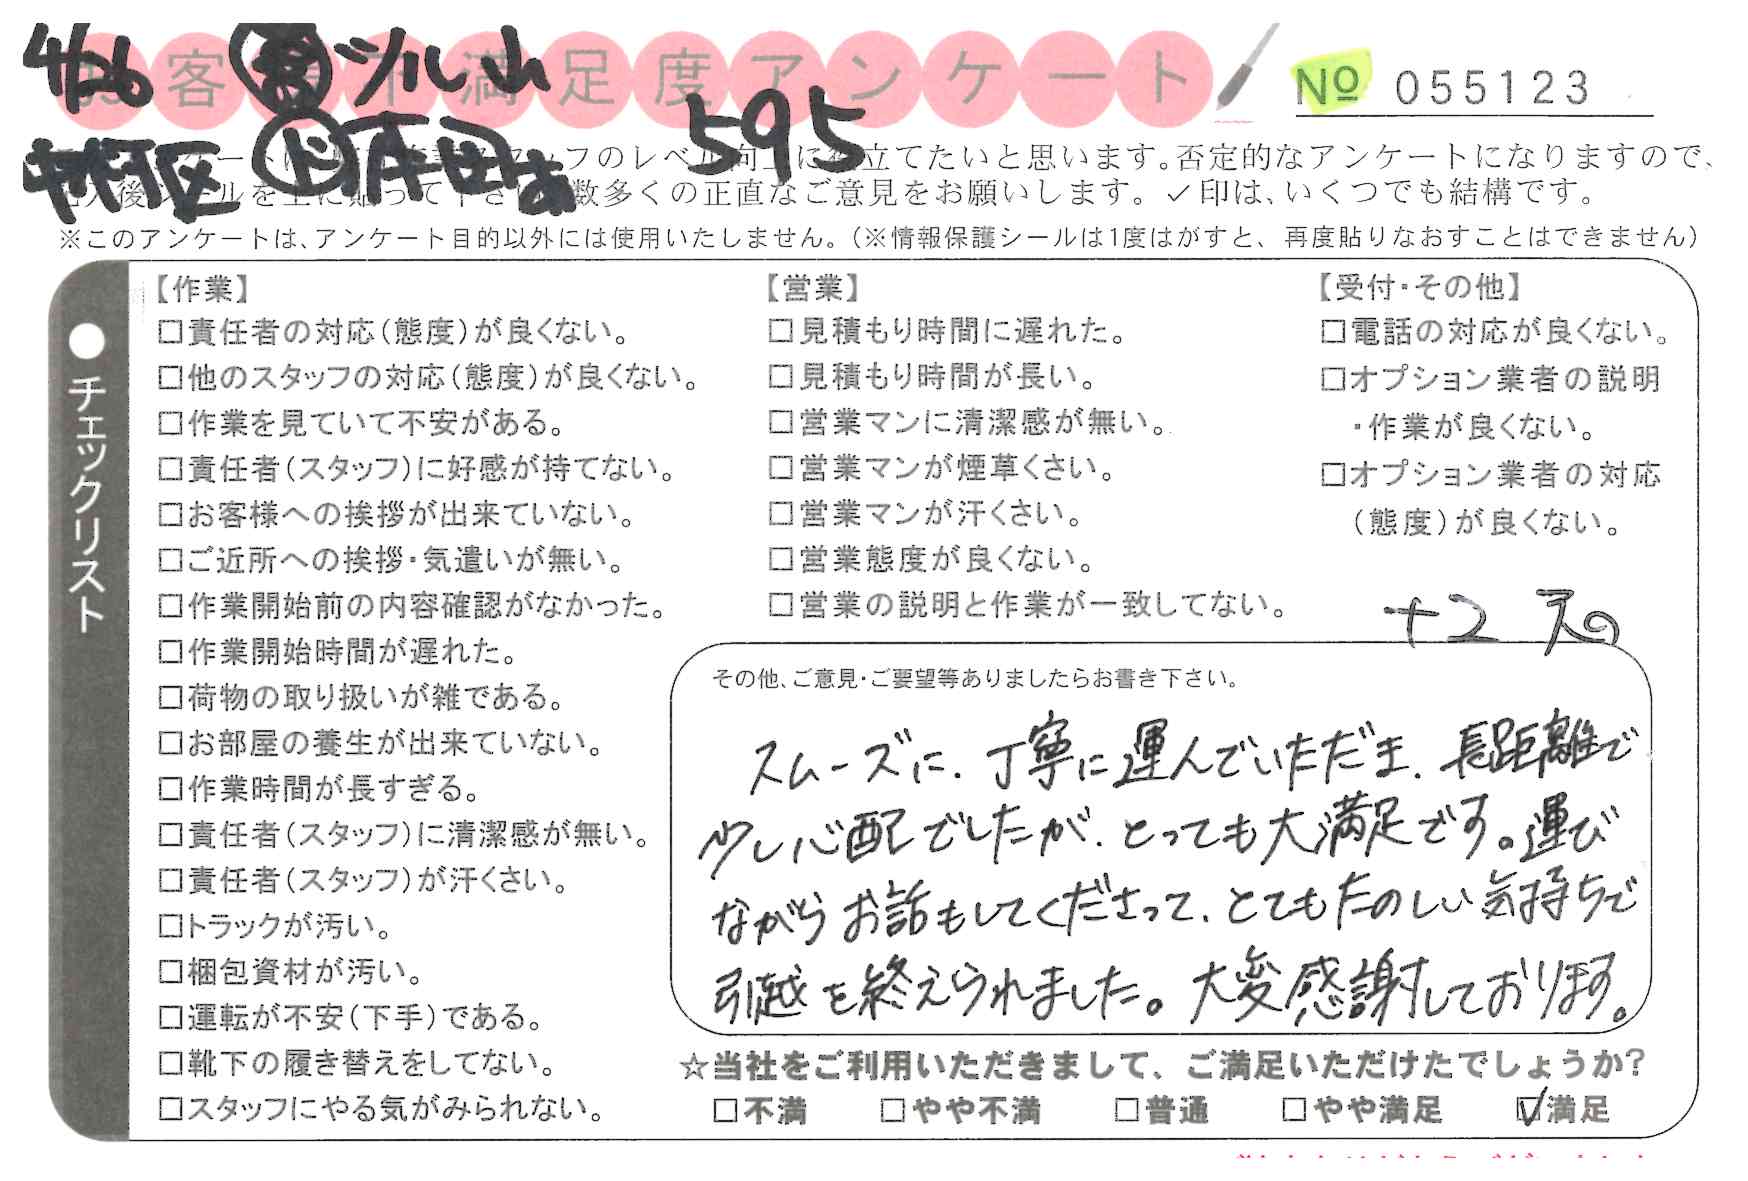 4/26 ツル山
お客様不満足度アンケート
No 055123
595
フのレベル向上に役立てたいと思います。否定的なアンケートになりますので、
数多くの正直なご意見をお願いします。✓印は、いくつでも結構です。
※このアンケートは、アンケート目的以外には使用いたしません。(※情報保護シールは1度はがすと、再度貼りなおすことはできません)
●チェックリスト
【作業】
□責任者の対応(態度)が良くない。
□他のスタッフの対応(態度)が良くない。
□作業を見ていて不安がある。
□責任者(スタッフ)に好感が持てない。
□お客様への挨拶が出来ていない。
□ご近所への挨拶・気遣いが無い。
□作業開始前の内容確認がなかった。
□作業開始時間が遅れた。
□荷物の取り扱いが雑である。
□お部屋の養生が出来ていない。
□作業時間が長すぎる。
□責任者(スタッフ)に清潔感が無い。
□責任者(スタッフ)が汗くさい。
□トラックが汚い。
□梱包資材が汚い。
□運転が不安(下手)である。
□靴下の履き替えをしてない。
□スタッフにやる気がみられない。
【営業】
□見積もり時間に遅れた。
□見積もり時間が長い。
□営業マンに清潔感が無い。
□営業マンが煙草くさい。
□営業マンが汗くさい。
□営業態度が良くない。
□営業の説明と作業が一致してない。
【受付・その他】
□電話の対応が良くない。
□オプション業者の説明
・作業が良くない。
□オプション業者の対応
(態度)が良くない。
+2
その他、ご意見・ご要望等ありましたらお書き下さい。
スムーズに、丁寧に運んでいただき、長距離で
少し心配でしたが、とっても大満足です。運び
ながらお話もしてくださって、とてもたのしい気持ちで
引越を終えられました。大変感謝しております。
☆当社をご利用いただきまして、ご満足いただけたでしょうか?
□不満 □やや不満 □普通 □やや満足 ☑満足